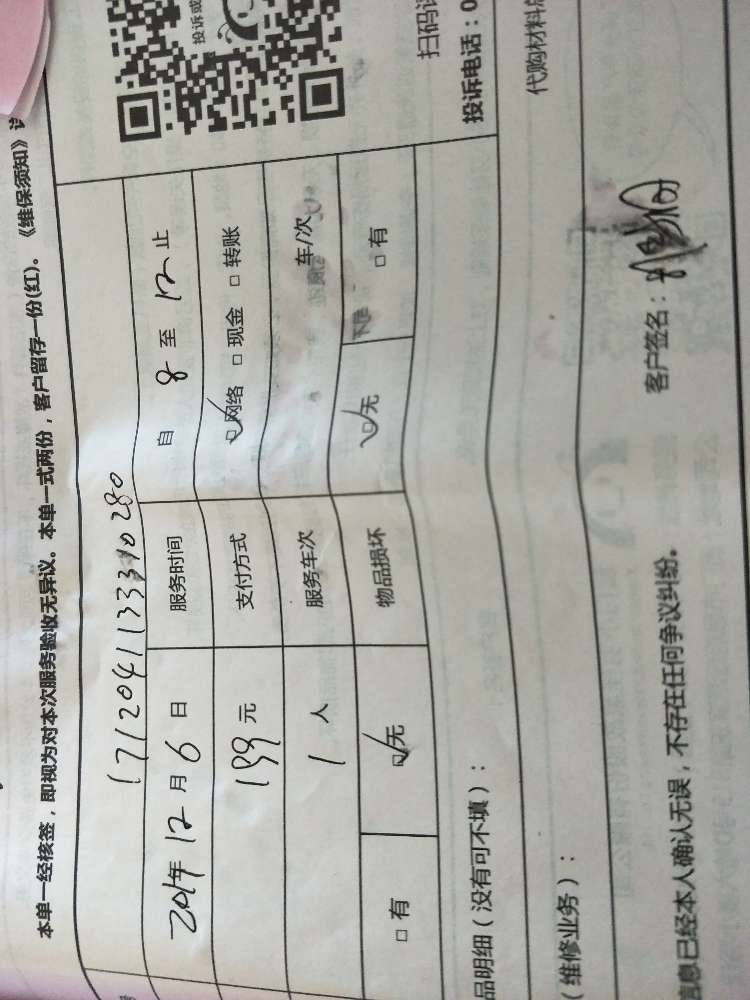 本单一经核签，即视为对本次服务验收无异议。本单一式两份，客户留存一份(红)。《维保须知》
投诉或
扫码
投诉电话：0
代购材料
1712041133310280
12月6日 服务时间 自 8 至 12 止
199元 支付方式 ☑网络 □现金 □转账
1人 服务车次 车/次
□有 ☑无 物品损坏 ☑无 □有
品明细（没有可不填）：
（维修业务）：
信息已经本人确认无误，不存在任何争议纠纷。 客户签名：